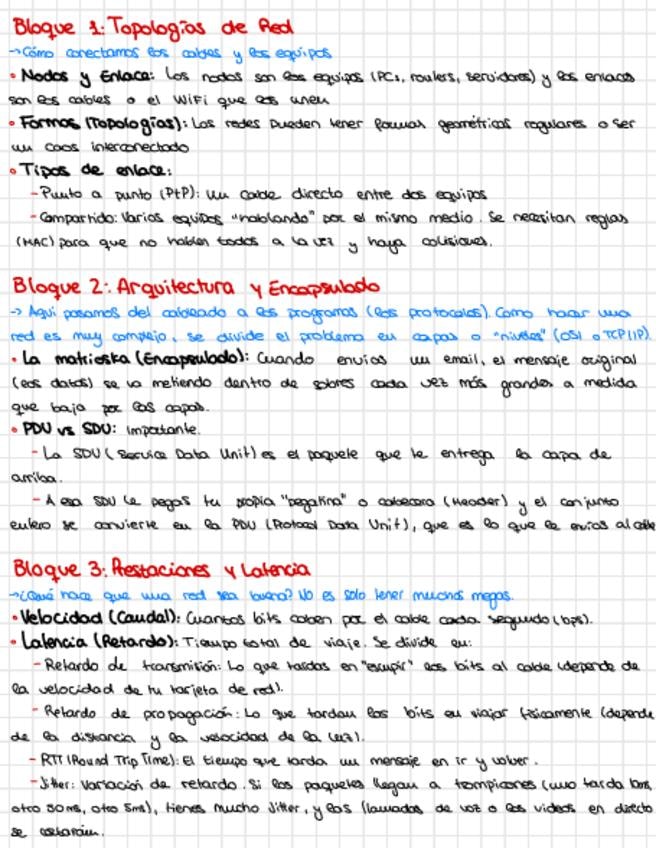 Bloque 1: Topologías de Red
→ Cómo conectamos los cables y los equipos
• Nodos y Enlace: Los nodos son los equipos (PCs, routers, servidores) y los enlaces
son los cables o el WiFi que los unen
• Formas (Topologías): Las redes pueden tener formas geométricas regulares o ser
un caos interconectado
• Tipos de enlace:
- Punto a punto (PtP): Un cable directo entre dos equipos
- Compartido: Varios equipos "hablando" por el mismo medio. Se necesitan reglas
(MAC) para que no hablen todos a la vez y haya colisiones.
Bloque 2: Arquitectura y Encapsulado
→ Aquí pasamos del cableado a los programas (los protocolos). Como hacer una
red es muy complejo, se divide el problema en capas o "niveles" (OSI o TCP/IP).
• La matrioska (Encapsulado): Cuando envías un email, el mensaje original
(los datos) se va metiendo dentro de sobres cada vez más grandes a medida
que baja por las capas.
• PDU vs SDU: Importante.
- La SDU (Service Data Unit) es el paquete que te entrega la capa de
arriba.
- A esa SDU le pegas tu propia "pegatina" o cabecera (Header) y el conjunto
entero se convierte en la PDU (Protocol Data Unit), que es lo que le envías al cable
Bloque 3: Prestaciones y Latencia
→ ¿Qué hace que una red sea buena? No es solo tener muchos megas.
• Velocidad (Caudal): Cuantos bits caben por el cable cada segundo (bps).
• Latencia (Retardo): Tiempo total de viaje. Se divide en:
- Retardo de transmisión: Lo que tardas en "escupir" los bits al cable (depende de
la velocidad de tu tarjeta de red).
- Retardo de propagación: Lo que tardan los bits en viajar físicamente (depende
de la distancia y la velocidad de la luz).
- RTT (Round Trip Time): El tiempo que tarda un mensaje en ir y volver.
- Jitter: Variación de retardo. Si los paquetes llegan a trompicones (uno tarda
otro 50ms, otro 5ms), tienes mucho Jitter, y las llamadas de voz o los videos en directo
se cortarán.